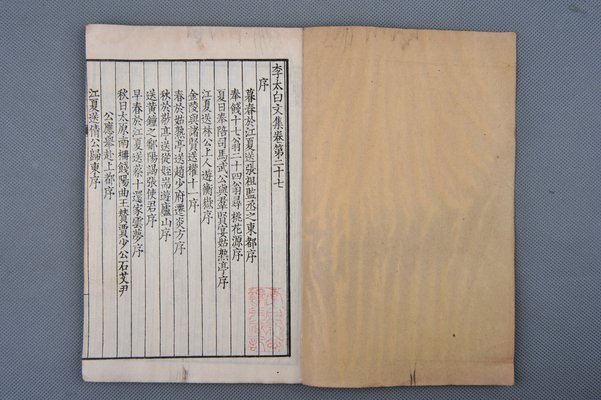 李太白文集卷第二十七
序
暮春於江夏送張祖監丞之東都序
奉餞十七翁二十四翁尋桃花源序
夏日奉陪司馬武公與羣賢宴姑熟亭序
江夏送林公上人遊衡嶽序
金陵與諸賢送權十一序
春於姑熟亭送趙少府遷炎方序
秋於敬亭送從姪耑遊廬山序
送黃鐘之鄱陽謁張使君序
早春於江夏送蔡十還家雲夢序
秋日太原南柵餞陽曲王贊公賈少公石艾尹
公應舉赴上都序
江夏送倩公歸東序